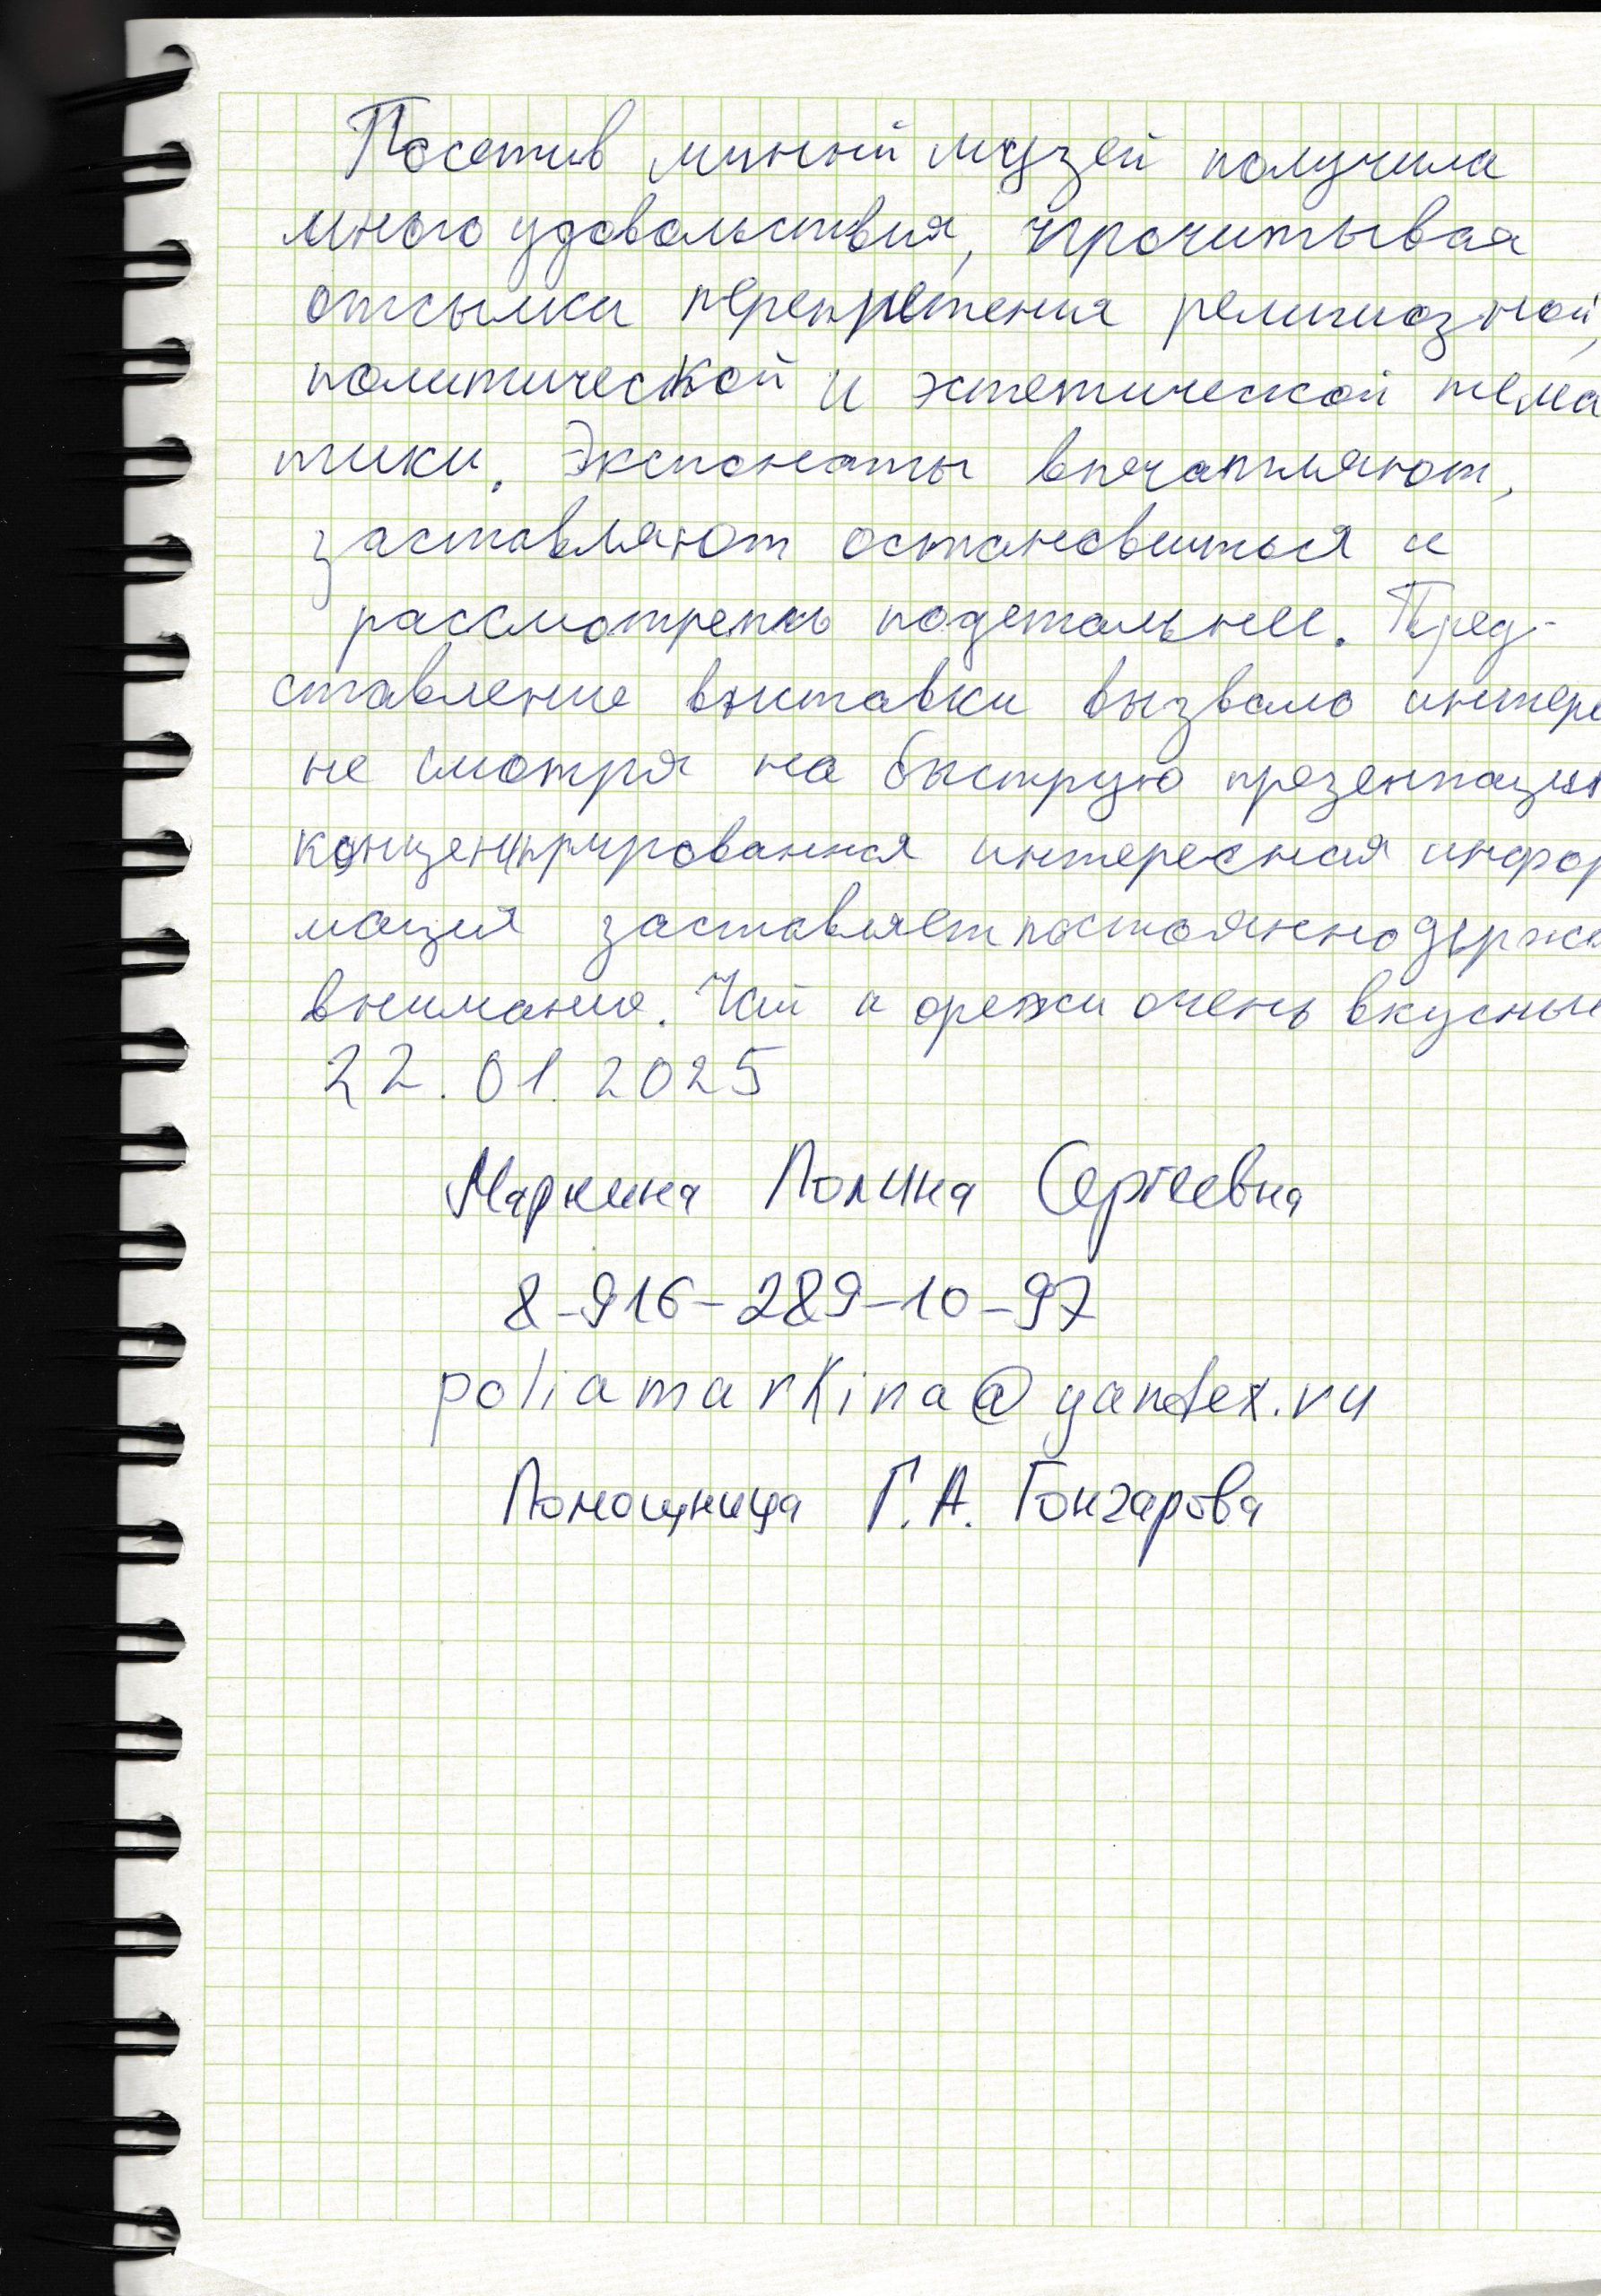 Посетив минний музей получила
много удовольствия, прочитывая
отсылки переплетения религиозной,
политической и эстетической тема
тики. Экспонаты впечатляют,
заставляют остановиться и
рассмотреть подетальнее. Пред-
ставление выставки вызвало интере
не смотря на быструю презентацию
концентрированная интересная инфор
мация заставляет постоянно держа
внимание. Чай и орехи очень вкусные
22.01.2025
Маркина Полина Сергеевна
8-916-289-10-97
poliamarkina@yandex.ru
Помощница Г.А. Гончарова